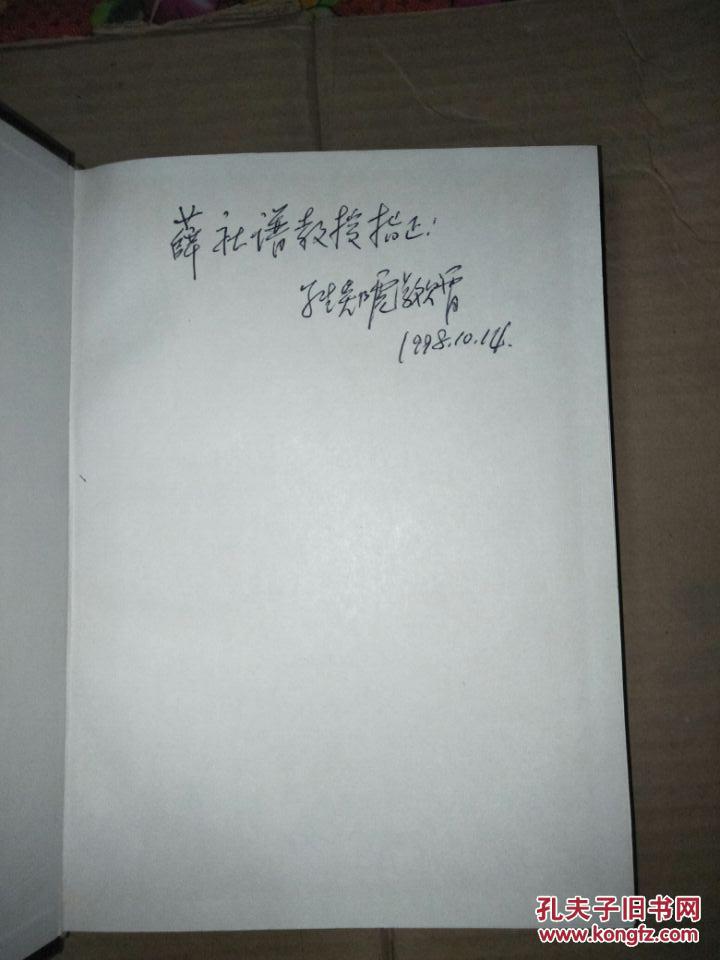 薛社谱教授指正!
敬赠
1998.10.14.
孔夫子旧书网
www.kongfz.com